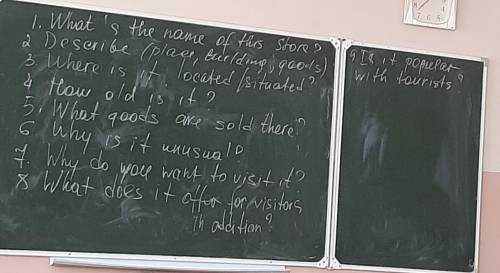 1. What's the name of this store?
2 Describe (place, building, goods)
3 Where is it located/situated?
4 How old is it?
5. What goods are sold there?
6 Why is it unusual?
7. Why do you want to visit it?
8 What does it offer for visitors
in addition?
9 Is it popular
with tourists?